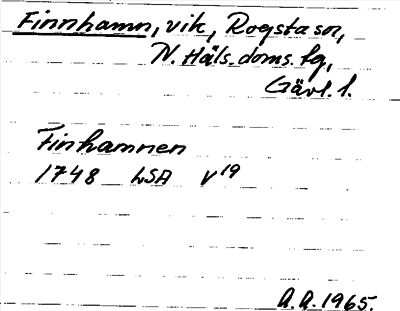 Finnhamn, vik, Rogsta sn,
N. Häls. doms. lg,
Gävl. l.
Finhamnen
1748 LSA V19
A.A. 1965.